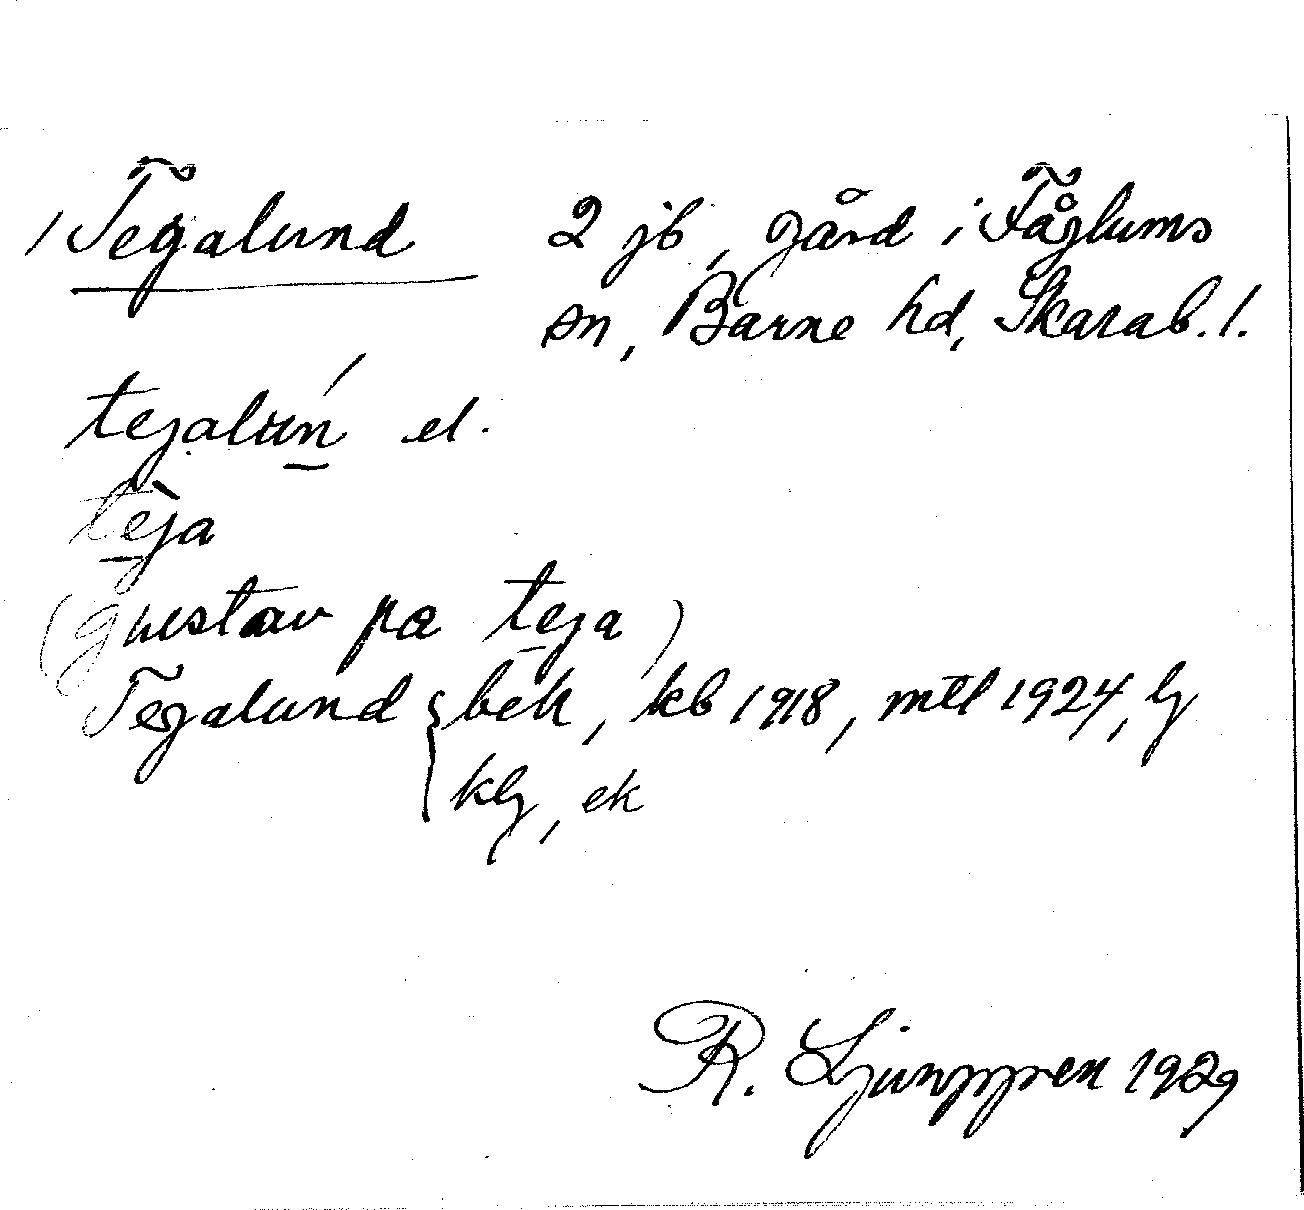 / Tegalund 2 jb, gård i Fåglums
sn, Barne hd, Skarab. l.
tejalun ́ el.
tèja
(gustav pa teja)
Tegalund { bek, kb 1918, mtl 1924, lj
klj, ek
R. Ljunggren 1929